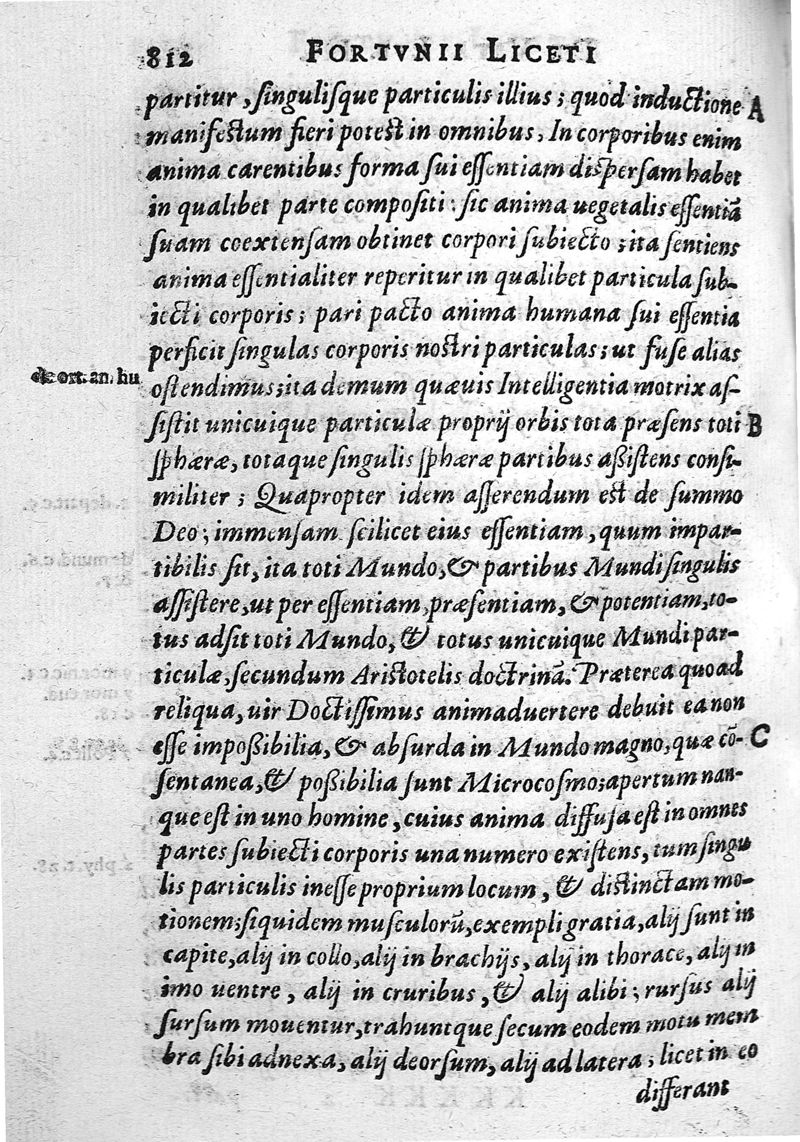 812 FORTVNII LICETI
partitur, ſinguliſque particulis illius; quod inductione A
manifestum fieri potest in omnibus, In corporibus enim
anima carentibus forma ſui eſſentiam diſperſam habet
in qualibet parte compoſiti: ſic anima uegetalis eſſentiā
ſuam coextenſam obtinet corpori ſubiecto; ita ſentiens
anima eſſentialiter reperitur in qualibet particula ſub-
iecti corporis; pari pacto anima humana ſui eſſentia
perficit ſingulas corporis nostri particulas; ut fuſe alias
de ort. an. hu ostendimus; ita demum quæuis Intelligentia motrix aſ-
ſistit unicuique particulæ proprij orbis tota præſens toti B
ſphæræ, totaque ſingulis ſphæræ partibus aßistens conſi-
militer; Quapropter idem aſſerendum est de ſummo
Deo; immenſam ſcilicet eius eſſentiam, quum impar-
tibilis ſit, ita toti Mundo, & partibus Mundi ſingulis
aſſiſtere, ut per eſſentiam, præſentiam, & potentiam, to-
tus adſit toti Mundo, & totus unicuique Mundi par-
ticulæ, ſecundum Aristotelis doctrinā. Præterea quoad
reliqua, uir Doctiſſimus animaduertere debuit ea non
eſſe impoßibilia, & abſurda in Mundo magno, quæ cō- C
ſentanea, & poßibilia ſunt Microcoſmo; apertum nan-
que est in uno homine, cuius anima diffuſa est in omnes
partes ſubiecti corporis una numero exiſtens, tum ſingu
lis particulis ineſſe proprium locum, & distinctam mo-
tionem; ſiquidem muſculorū, exempli gratia, alij ſunt in
capite, alij in collo, alij in brachijs, alij in thorace, alij in
imo uentre, alij in cruribus, & alij alibi; rurſus alij
ſurſum mouentur, trahuntque ſecum eodem motu mem
bra ſibi adnexa, alij deorſum, alij ad latera; licet in eo
differant